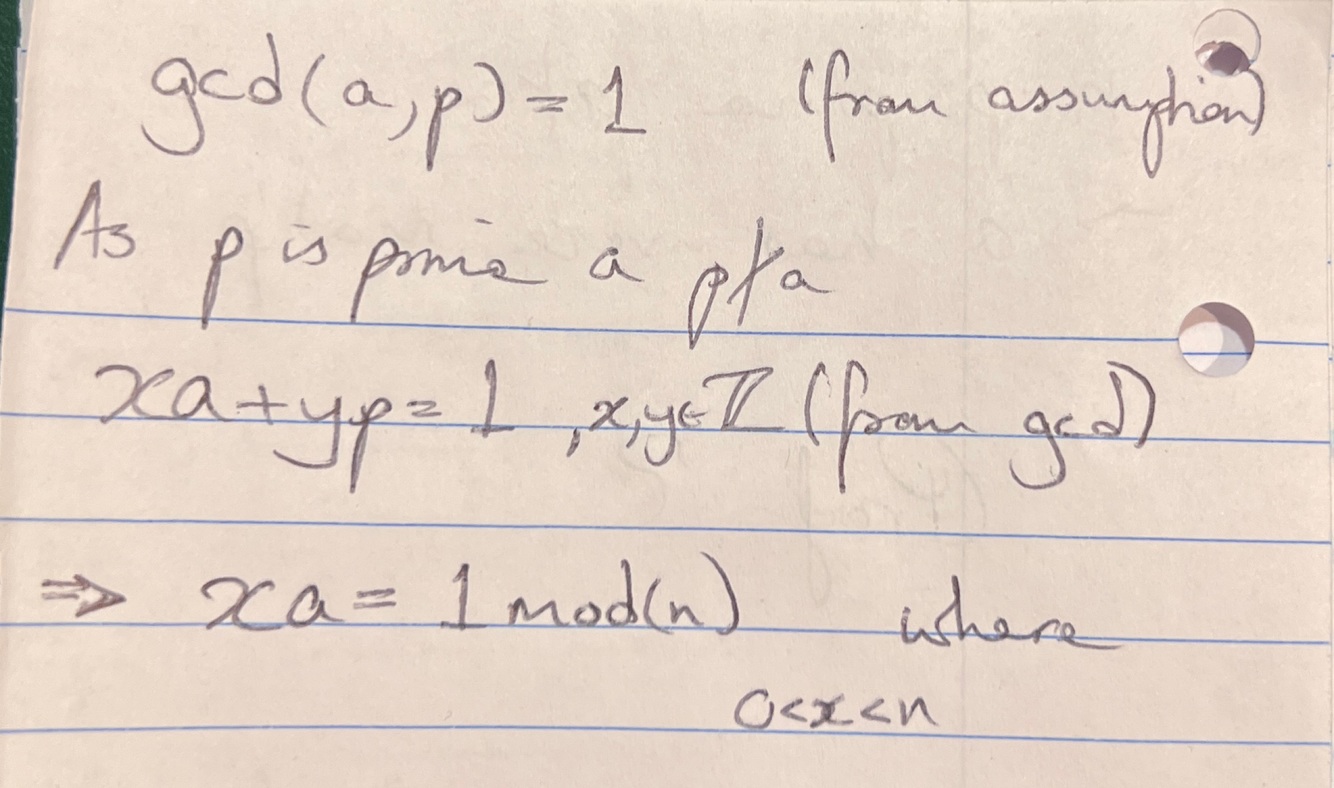 gcd(a,p) = 1 (from assumption)
As p is prime a p∤a
xa+yp = 1 ,x,y∈ℤ (from gcd)
⇒ xa = 1 mod(n) where
0<x<n